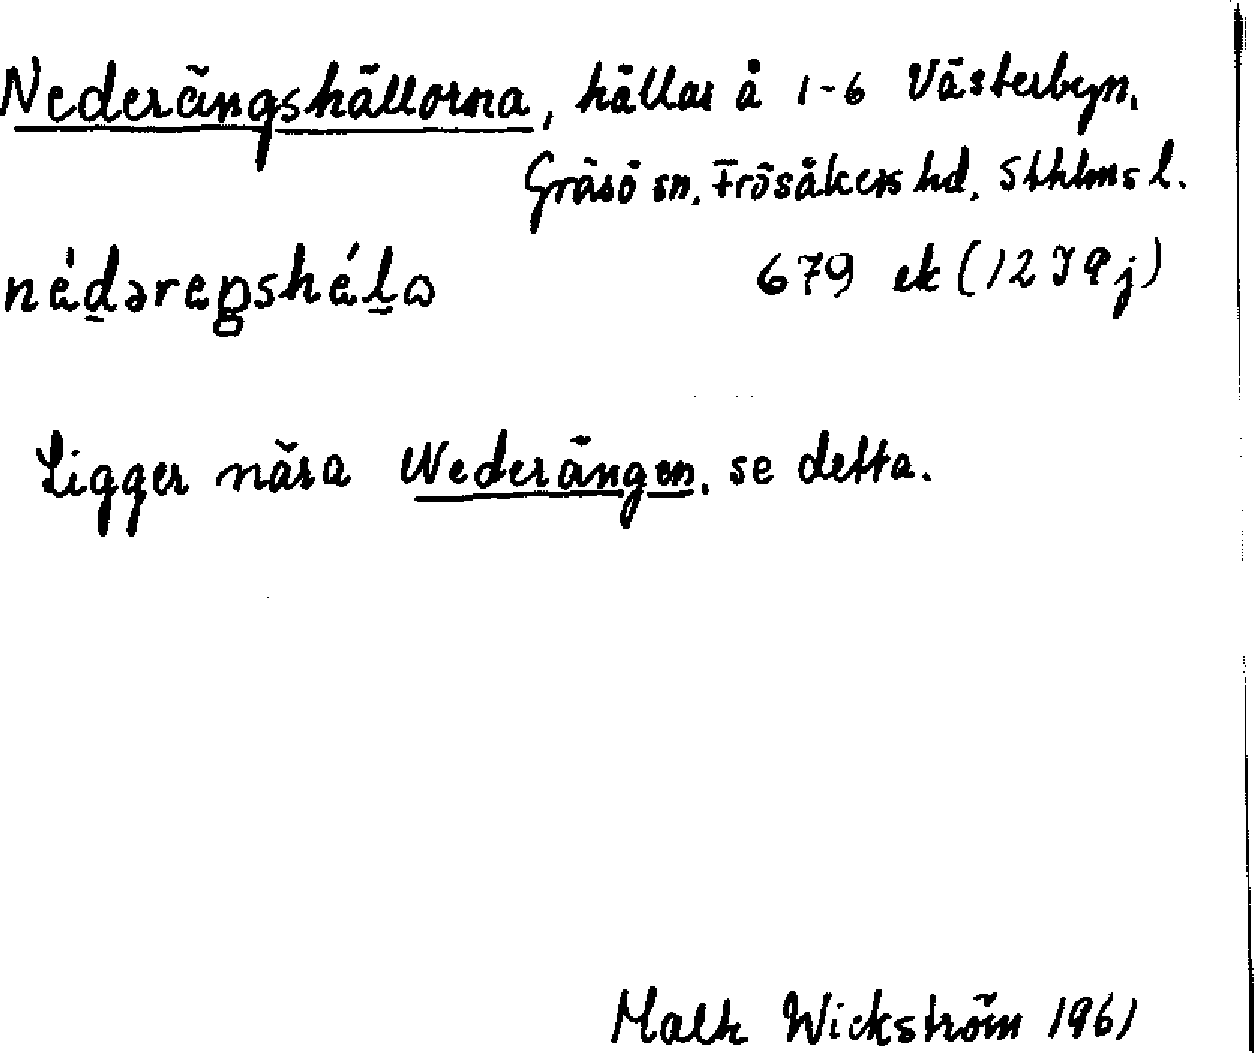 Nederängshällorna, hällar å 1-6 Västerbyn,
Gräsö sn, Frösåkers hd, Sthlms l.
679 ek (12I9j)
Ligger nära Nederängen, se detta.
Wickström 1961